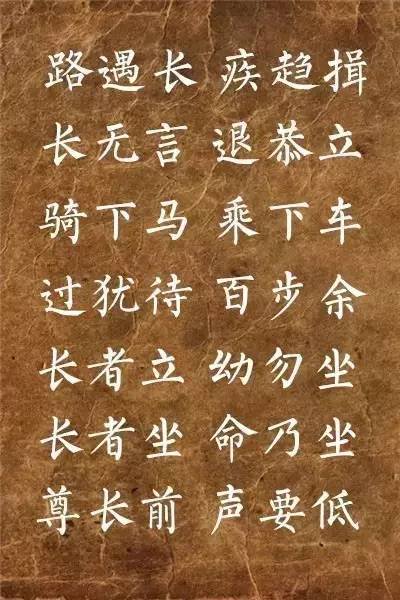 路遇长 疾趋揖
长无言 退恭立
骑下马 乘下车
过犹待 百步余
长者立 幼勿坐
长者坐 命乃坐
尊长前 声要低